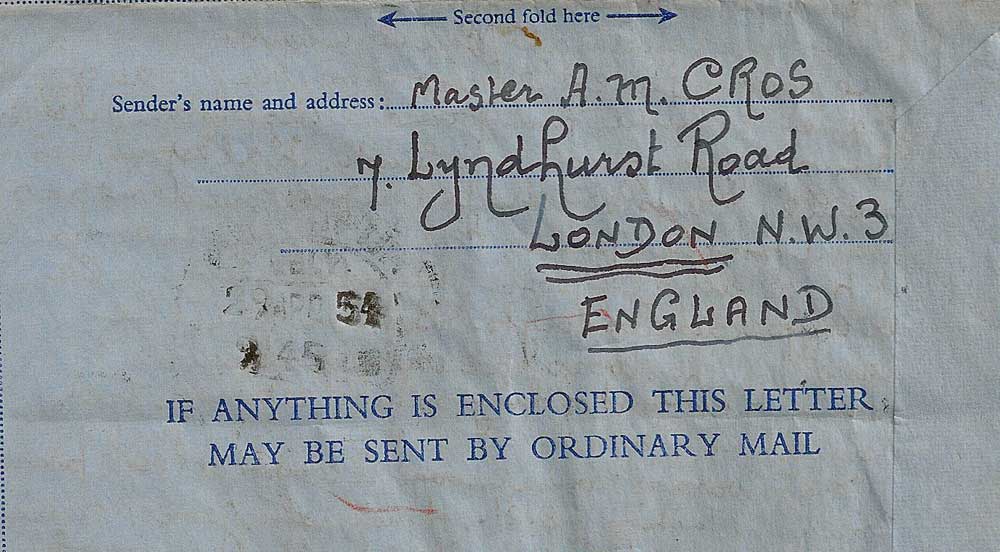 Second fold here
Sender's name and address: Master A.M. CROS
7. Lyndhurst Road
LONDON N.W.3
ENGLAND
54
45
IF ANYTHING IS ENCLOSED THIS LETTER
MAY BE SENT BY ORDINARY MAIL